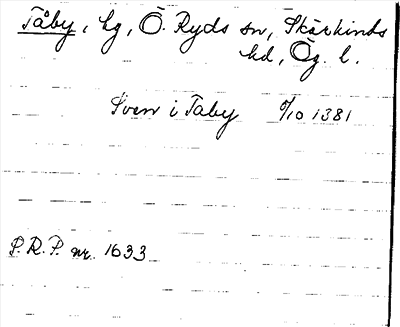 Tåby, hg, Ö. Ryds sn, Skärkinds
hd, Ög. l.
Sven i Taby 6/10 1381
P.R.P. nr. 1633